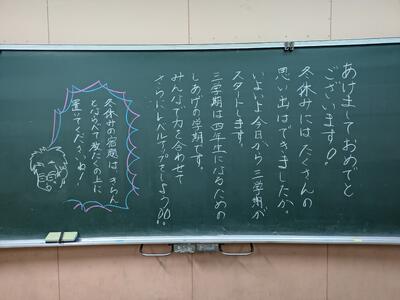 あけましておめでとう
ございます!
冬休みにはたくさんの
思い出はできましたか。
いよいよ今日から三学期が
スタートします。
三学期は四年生になるための
しあげの学期です。
みんなで力を合わせて
さらにレベルアップしよう!!
冬休みの宿題は、きちんと
ならべて机の上に
置いてくださいね!